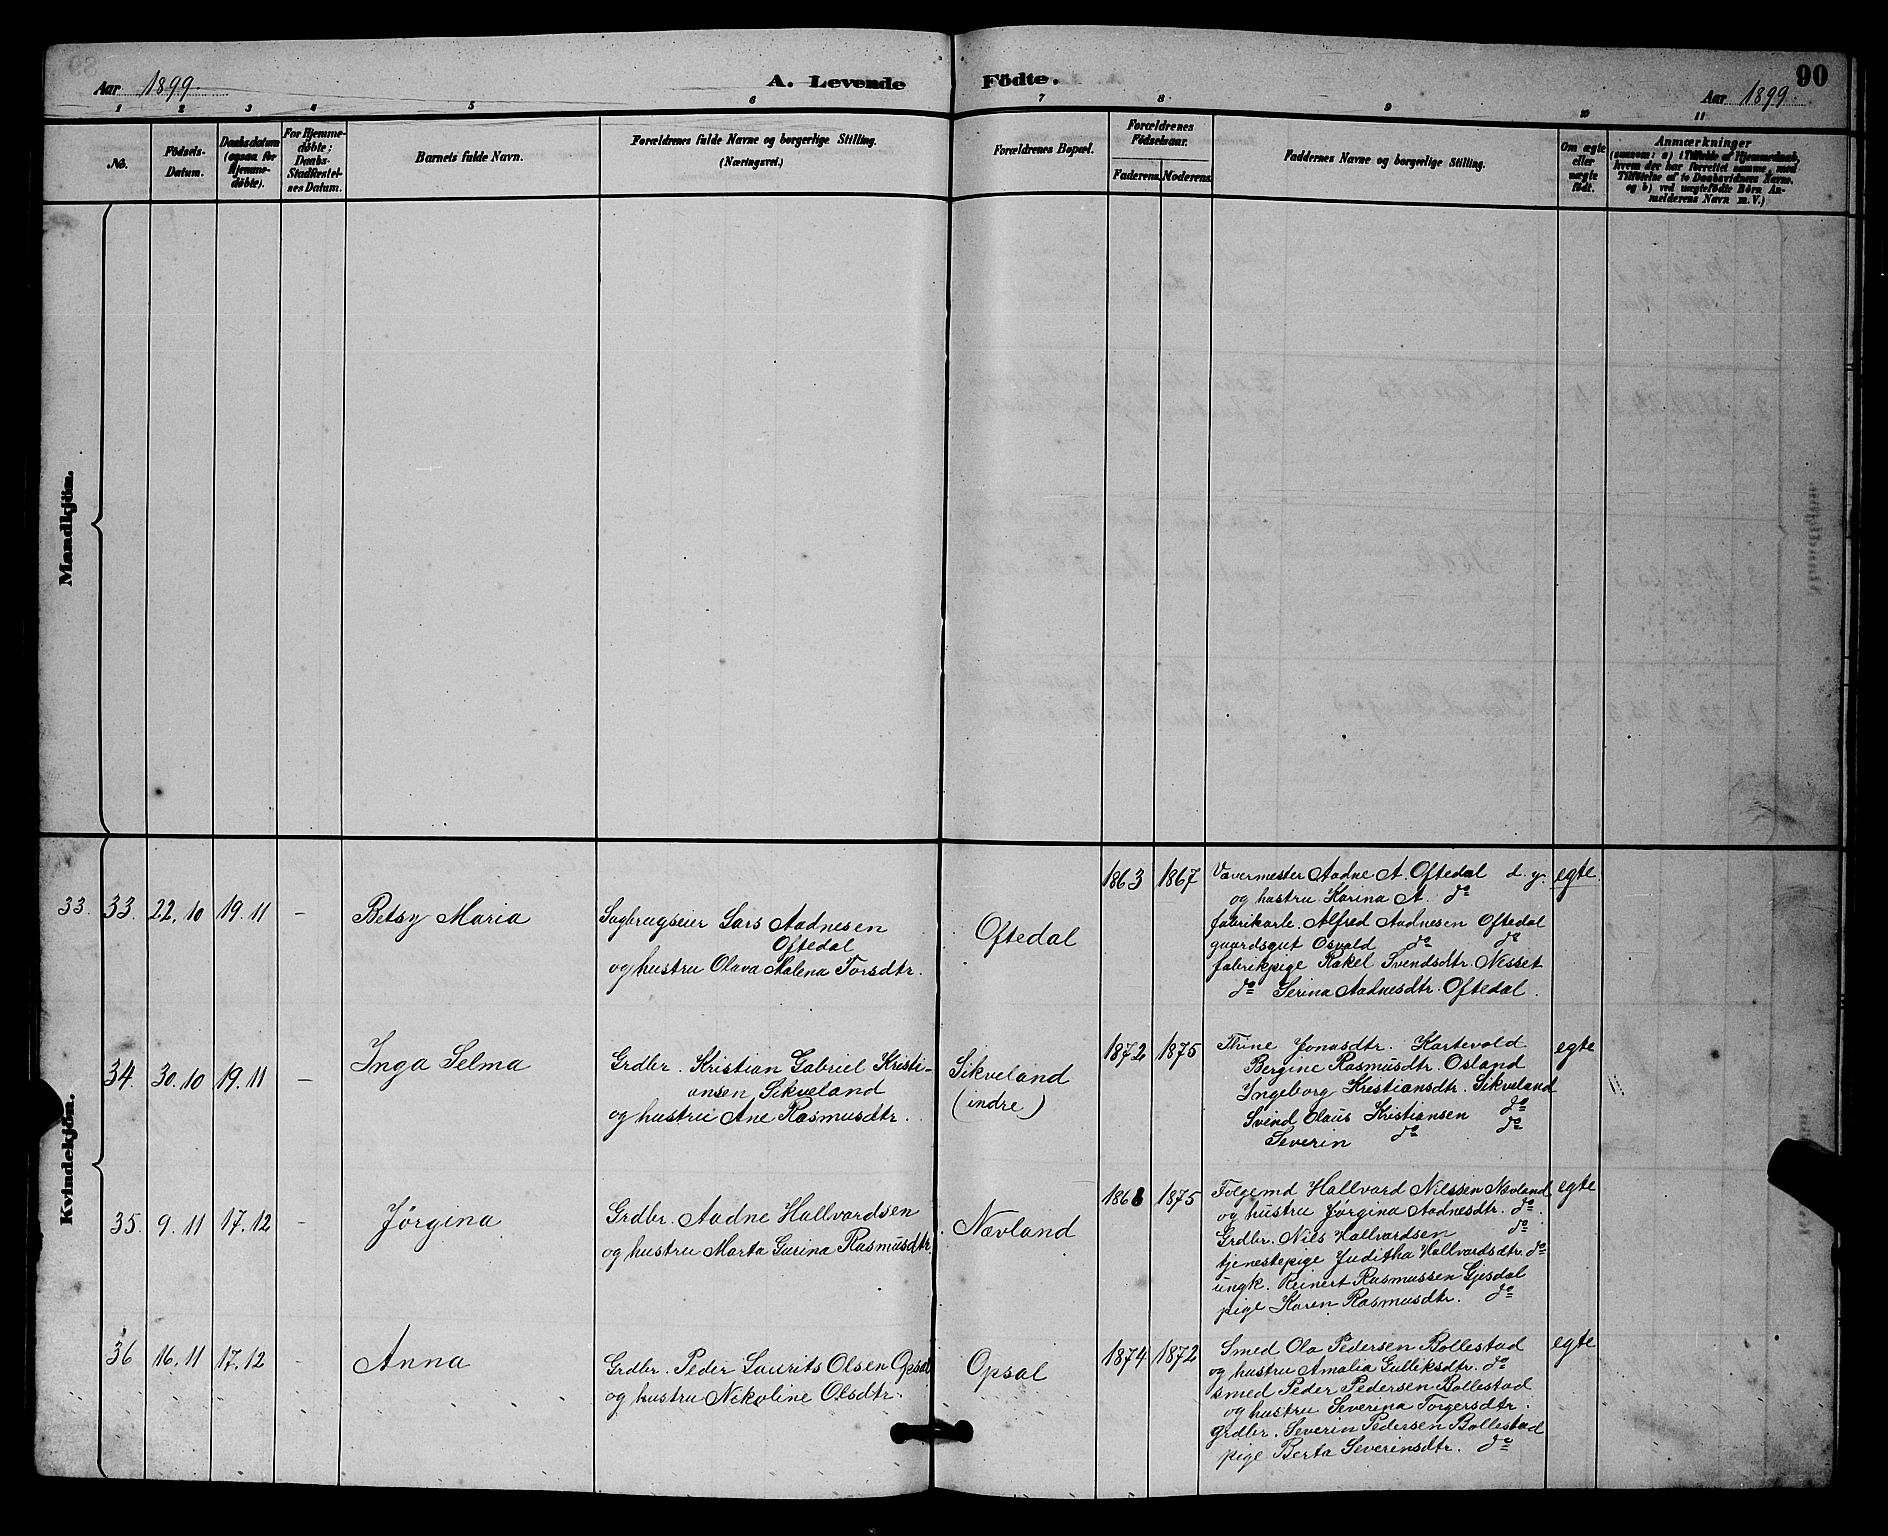 Aar 1899.
A. Levende Födte.
90
Aar 1899.
1 2 3 4 5 6 7 8 9 10 11
No.
Födsels-
Datum.
Daabsdatum
(ogsaa for
Hjemme-
døbte).
For Hjemme-
døbte:
Daabs-
Stadfæstel-
ses Datum.
Barnets fulde Navn.
Forældrenes fulde Navne og borgerlige Stilling.
(Næringsvei.)
Forældrenes Bopæl.
Forældrenes
Födselsaar.
Faderens. Moderens.
Faddernes Navne og borgerlige Stilling.
Om ægte
eller
uægte
födt.
Anmærkninger
(saasom: a) i Tilfælde af Hjemmedaab,
hvem der har forrettet samme, med
Tilføielse af to Daabsvidners Navne,
og b) ved uægtefödte Börn An-
melderens Navn m. V.)
Mandkjön.
Kvindekjön.
33. 33. 22.10 19.11 –
Betsy Maria
Sagbrugseier Lars Aadnesen
Oftedal
og hustru Olava Malena Torsdtr.
Oftedal
1863 1867
Vævermester Aadne A. Oftedal d. y.
og hustru Karina A. do
fabrikarb. Alfred Aadnesen Oftedal
gaardsgut Osvald do do
fabrikpige Rakel Svendsdtr. Nesset
do Serina Aadnesdtr. Oftedal.
egte.
34. 30.10 19.11 –
Inga Selma
Grdbr. Kristian Gabriel Kristi-
ansen Sikveland
og hustru Ane Rasmusdtr.
Sikveland
(indre)
1872 1875
Thine Jonasdtr. Kartevold
Bergine Rasmusdtr. Osland
Ingeborg Kristiansdtr. Sikveland
Svend Olaus Kristiansen do
Severin do do
egte
35. 9.11 17.12 –
Jørgina
Grdbr. Aadne Hallvardsen
og hustru Marta Gurina Rasmusdtr.
Nævland
1868 1875
Folgemd Hallvard Nilssen Nævland
og hustru Jørgina Aadnesdtr. do.
Grdbr. Nils Hallvardsen do
tjenestepige Juditha Hallvardsdtr. do
ungk. Reinert Rasmussen Gjesdal
pige Karen Rasmusdtr. do
egte
36 16.11 17.12 –
Anna
Grdbr. Peder Laurits Olsen Opsal
og hustru Nikoline Olsdtr.
Opsal
1874 1872
Smed Ola Pedersen Bollestad
og hustru Amalia Gulliksdtr. do
smed Peder Pedersen Bollestad
og hustru Severina Torgersdtr.
grdbr. Severin Pedersen Bollestad
pige Berta Severinsdtr. do
egte